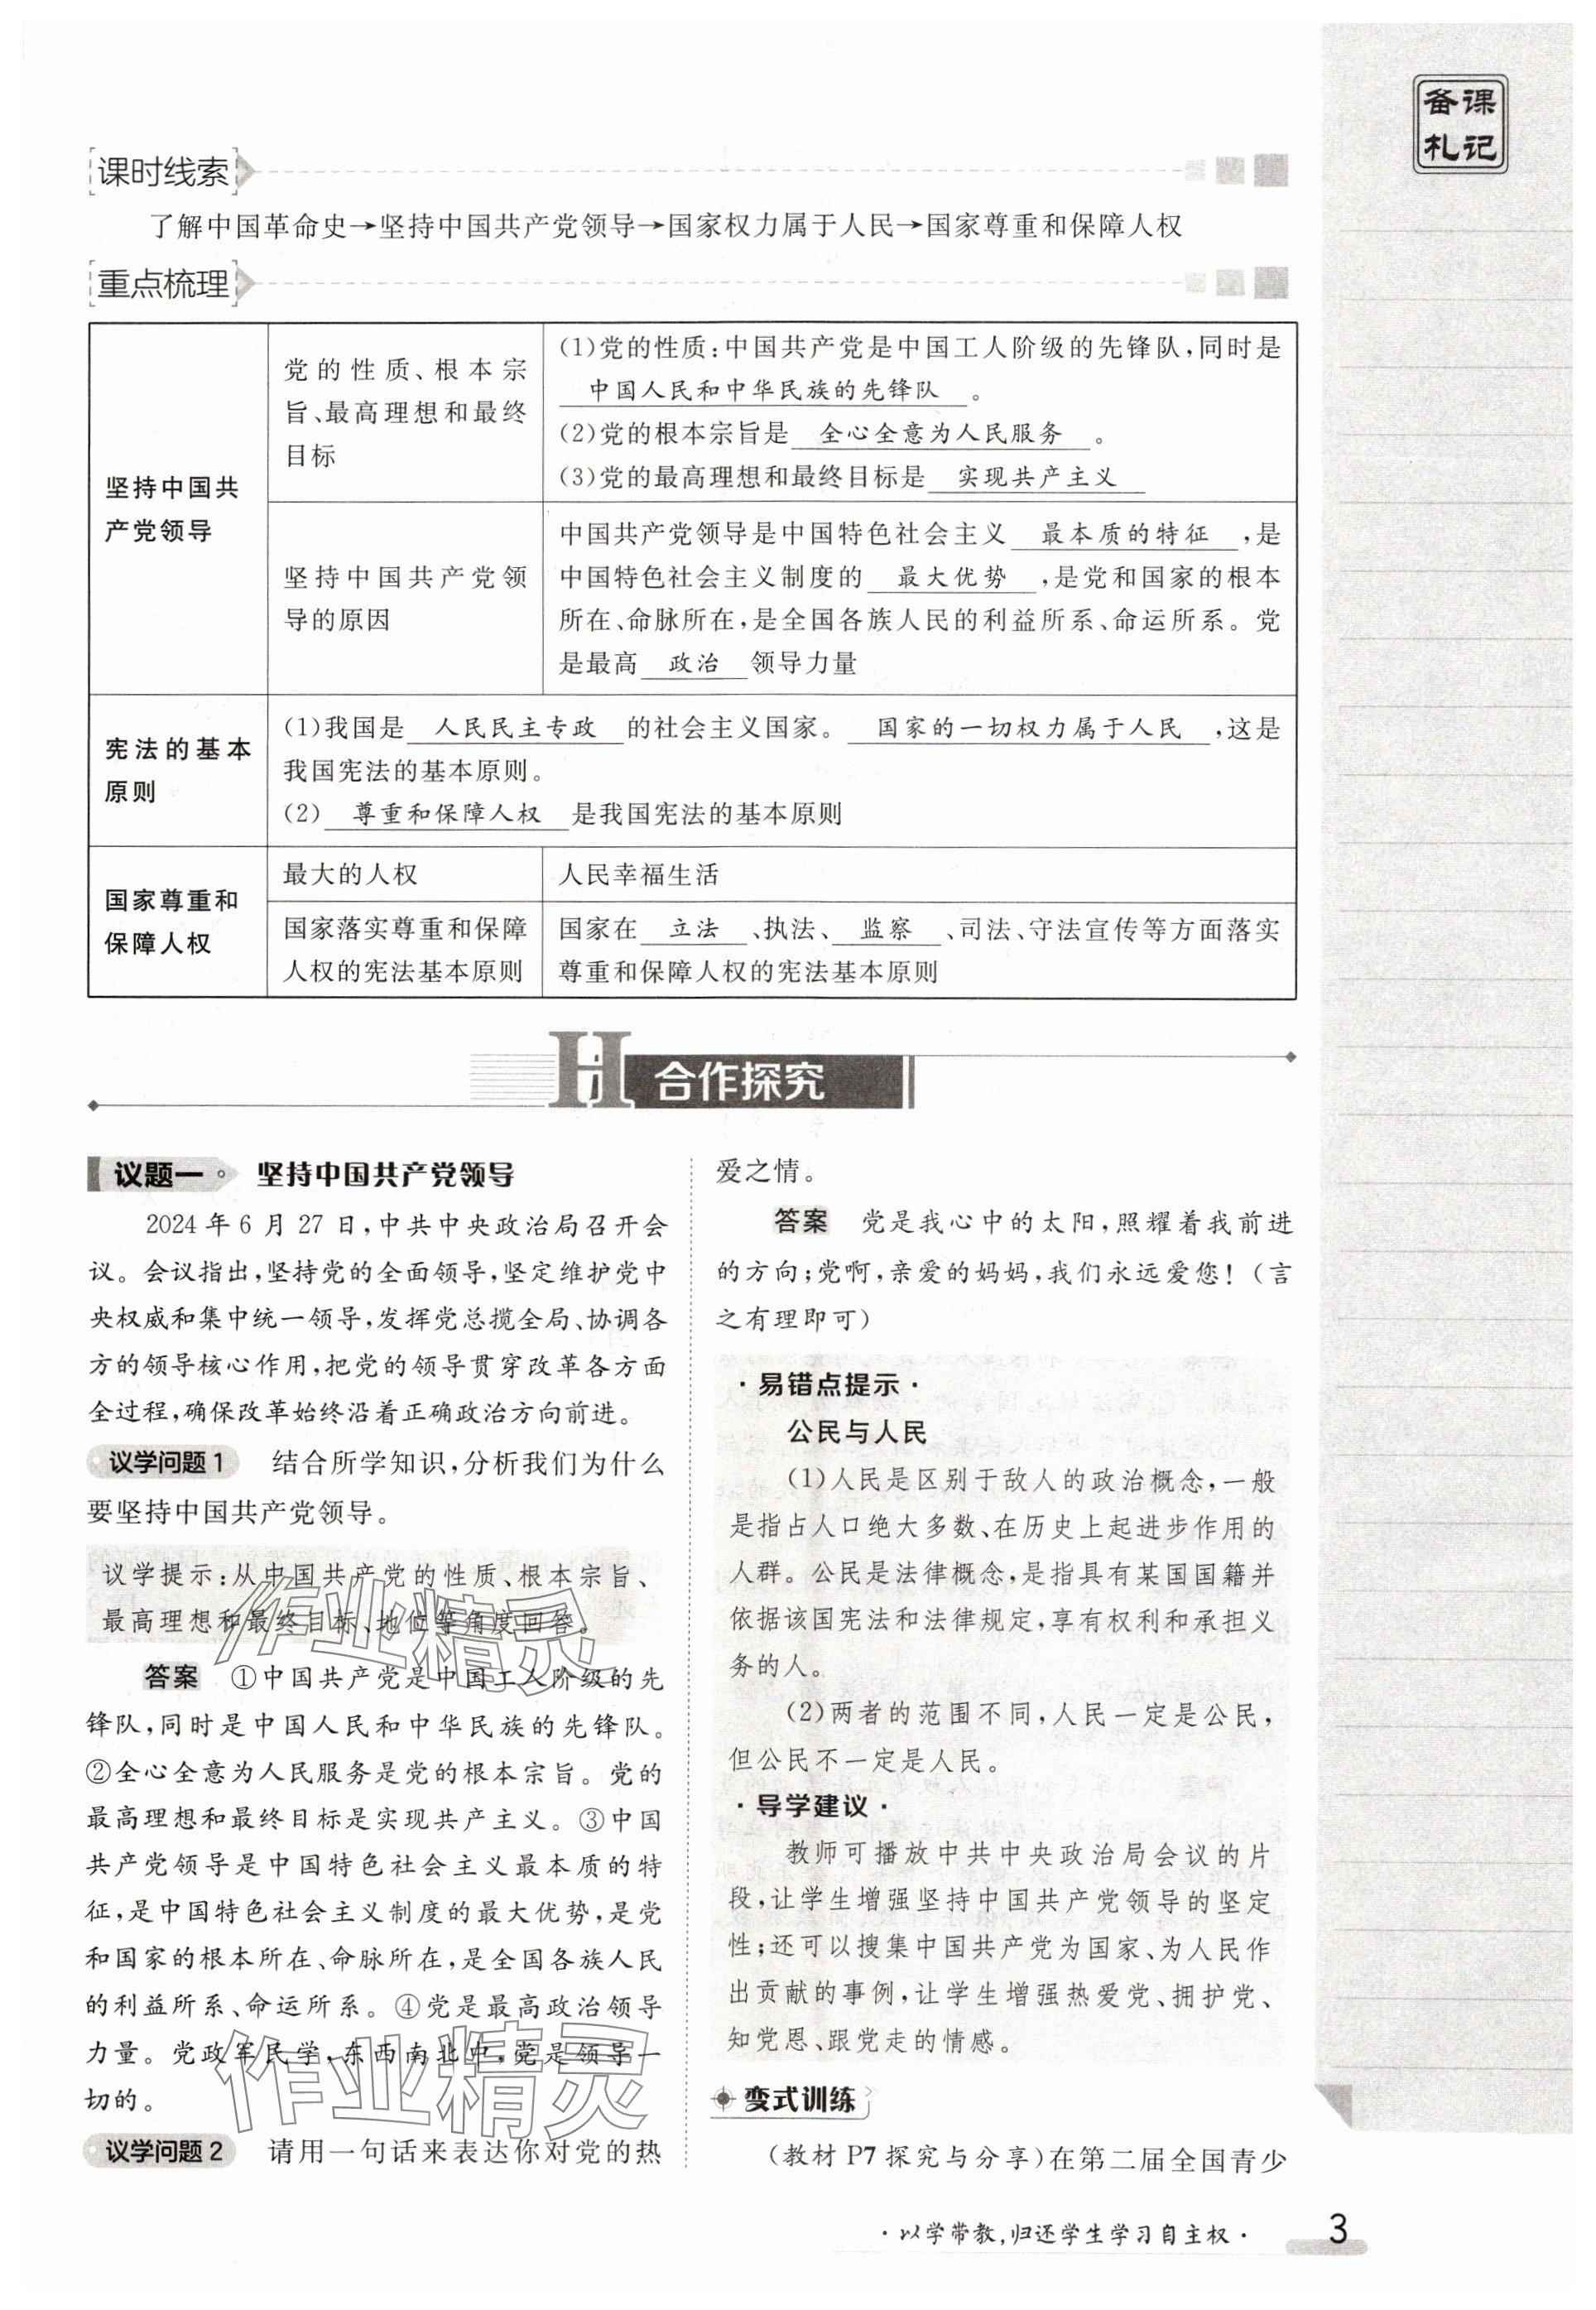 备课
札记
课时线索
了解中国革命史→坚持中国共产党领导→国家权力属于人民→国家尊重和保障人权
重点梳理
坚持中国共
产党领导
党的性质、根本宗
旨、最高理想和最终
目标
(1)党的性质:中国共产党是中国工人阶级的先锋队,同时是
中国人民和中华民族的先锋队。
(2)党的根本宗旨是 全心全意为人民服务 。
(3)党的最高理想和最终目标是 实现共产主义
坚持中国共产党领
导的原因
中国共产党领导是中国特色社会主义 最本质的特征 ,是
中国特色社会主义制度的 最大优势 ,是党和国家的根本
所在、命脉所在,是全国各族人民的利益所系、命运所系。党
是最高 政治 领导力量
宪法的基本
原则
(1)我国是 人民民主专政 的社会主义国家。 国家的一切权力属于人民 ,这是
我国宪法的基本原则。
(2) 尊重和保障人权 是我国宪法的基本原则
国家尊重和
保障人权
最大的人权
人民幸福生活
国家落实尊重和保障
人权的宪法基本原则
国家在 立法 、执法、 监察 、司法、守法宣传等方面落实
尊重和保障人权的宪法基本原则
H 合作探究
议题一 坚持中国共产党领导
2024年6月27日,中共中央政治局召开会
议。会议指出,坚持党的全面领导,坚定维护党中
央权威和集中统一领导,发挥党总揽全局、协调各
方的领导核心作用,把党的领导贯穿改革各方面
全过程,确保改革始终沿着正确政治方向前进。
议学问题1 结合所学知识,分析我们为什么
要坚持中国共产党领导。
议学提示:从中国共产党的性质、根本宗旨、
最高理想和最终目标、地位等角度回答。
答案 ①中国共产党是中国工人阶级的先
锋队,同时是中国人民和中华民族的先锋队。
②全心全意为人民服务是党的根本宗旨。党的
最高理想和最终目标是实现共产主义。③中国
共产党领导是中国特色社会主义最本质的特
征,是中国特色社会主义制度的最大优势,是党
和国家的根本所在、命脉所在,是全国各族人民
的利益所系、命运所系。④党是最高政治领导
力量。党政军民学,东西南北中,党是领导一
切的。
议学问题2 请用一句话来表达你对党的热
爱之情。
答案 党是我心中的太阳,照耀着我前进
的方向;党啊,亲爱的妈妈,我们永远爱您!(言
之有理即可)
·易错点提示·
公民与人民
(1)人民是区别于敌人的政治概念,一般
是指占人口绝大多数、在历史上起进步作用的
人群。公民是法律概念,是指具有某国国籍并
依据该国宪法和法律规定,享有权利和承担义
务的人。
(2)两者的范围不同,人民一定是公民,
但公民不一定是人民。
·导学建议·
教师可播放中共中央政治局会议的片
段,让学生增强坚持中国共产党领导的坚定
性;还可以搜集中国共产党为国家、为人民作
出贡献的事例,让学生增强热爱党、拥护党、
知党恩、跟党走的情感。
变式训练
(教材P7探究与分享)在第二届全国青少
作业精灵
作业精灵
·以学带教,归还学生学习自主权·
3